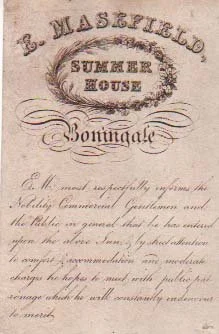 E. MASEFIELD,
SUMMER
HOUSE
Boningale
E. M. most respectfully informs the
Nobility Commercial Gentlemen and
the Public in general that he has entered
upon the above Inn, & by strict attention
to comfort & accommodation and moderate
charges he hopes to meet with public pat-
ronage which he will constantly endeavour
to merit.